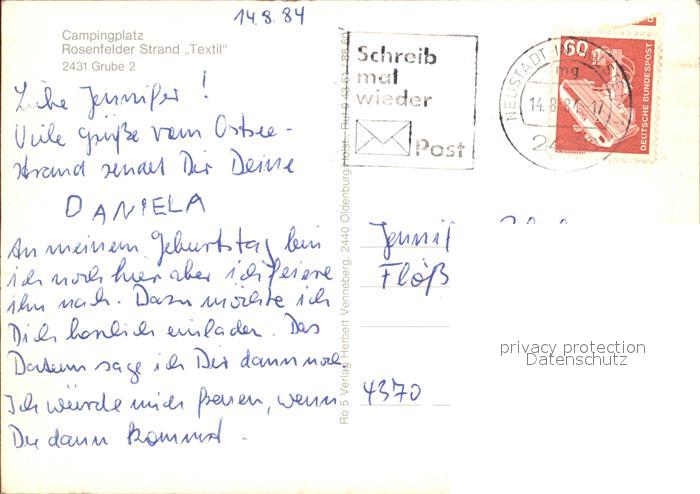 14.8.84
Campingplatz
Rosenfelder Strand „Textil“
2431 Grube 2
Liebe Jennifer!
Viele Grüße vom Ostsee-
strand sendet Dir Deine
DANIELA
An meinem Geburtstag bin
ich noch hier aber ich feiere
ihn nach. Dazu möchte ich
Dich herzlich einladen. Das
Datum sage ich Dir dann noch.
Ich würde mich freuen, wenn
Du dann kommst.
Ro 5 Verlag Herbert Venneberg, 2440 Oldenburg/Holst. Ruf 0 43 61
Schreib
mal
wieder
Post
NEUSTADT IN
mg
14.8.84-17
24
60
DEUTSCHE BUNDESPOST
Jennif
Flöß
4370
privacy protection
Datenschutz